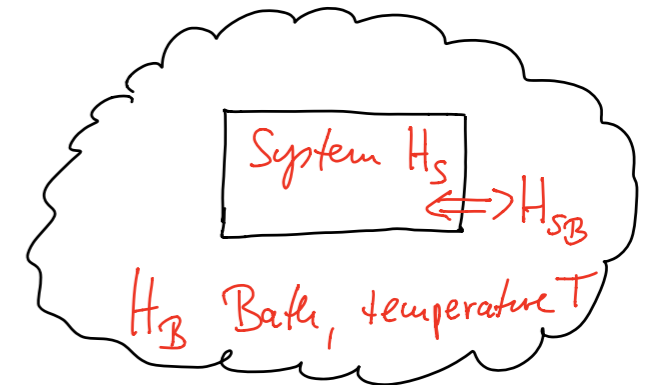 System H_S
H_SB
H_B Bath, temperature T